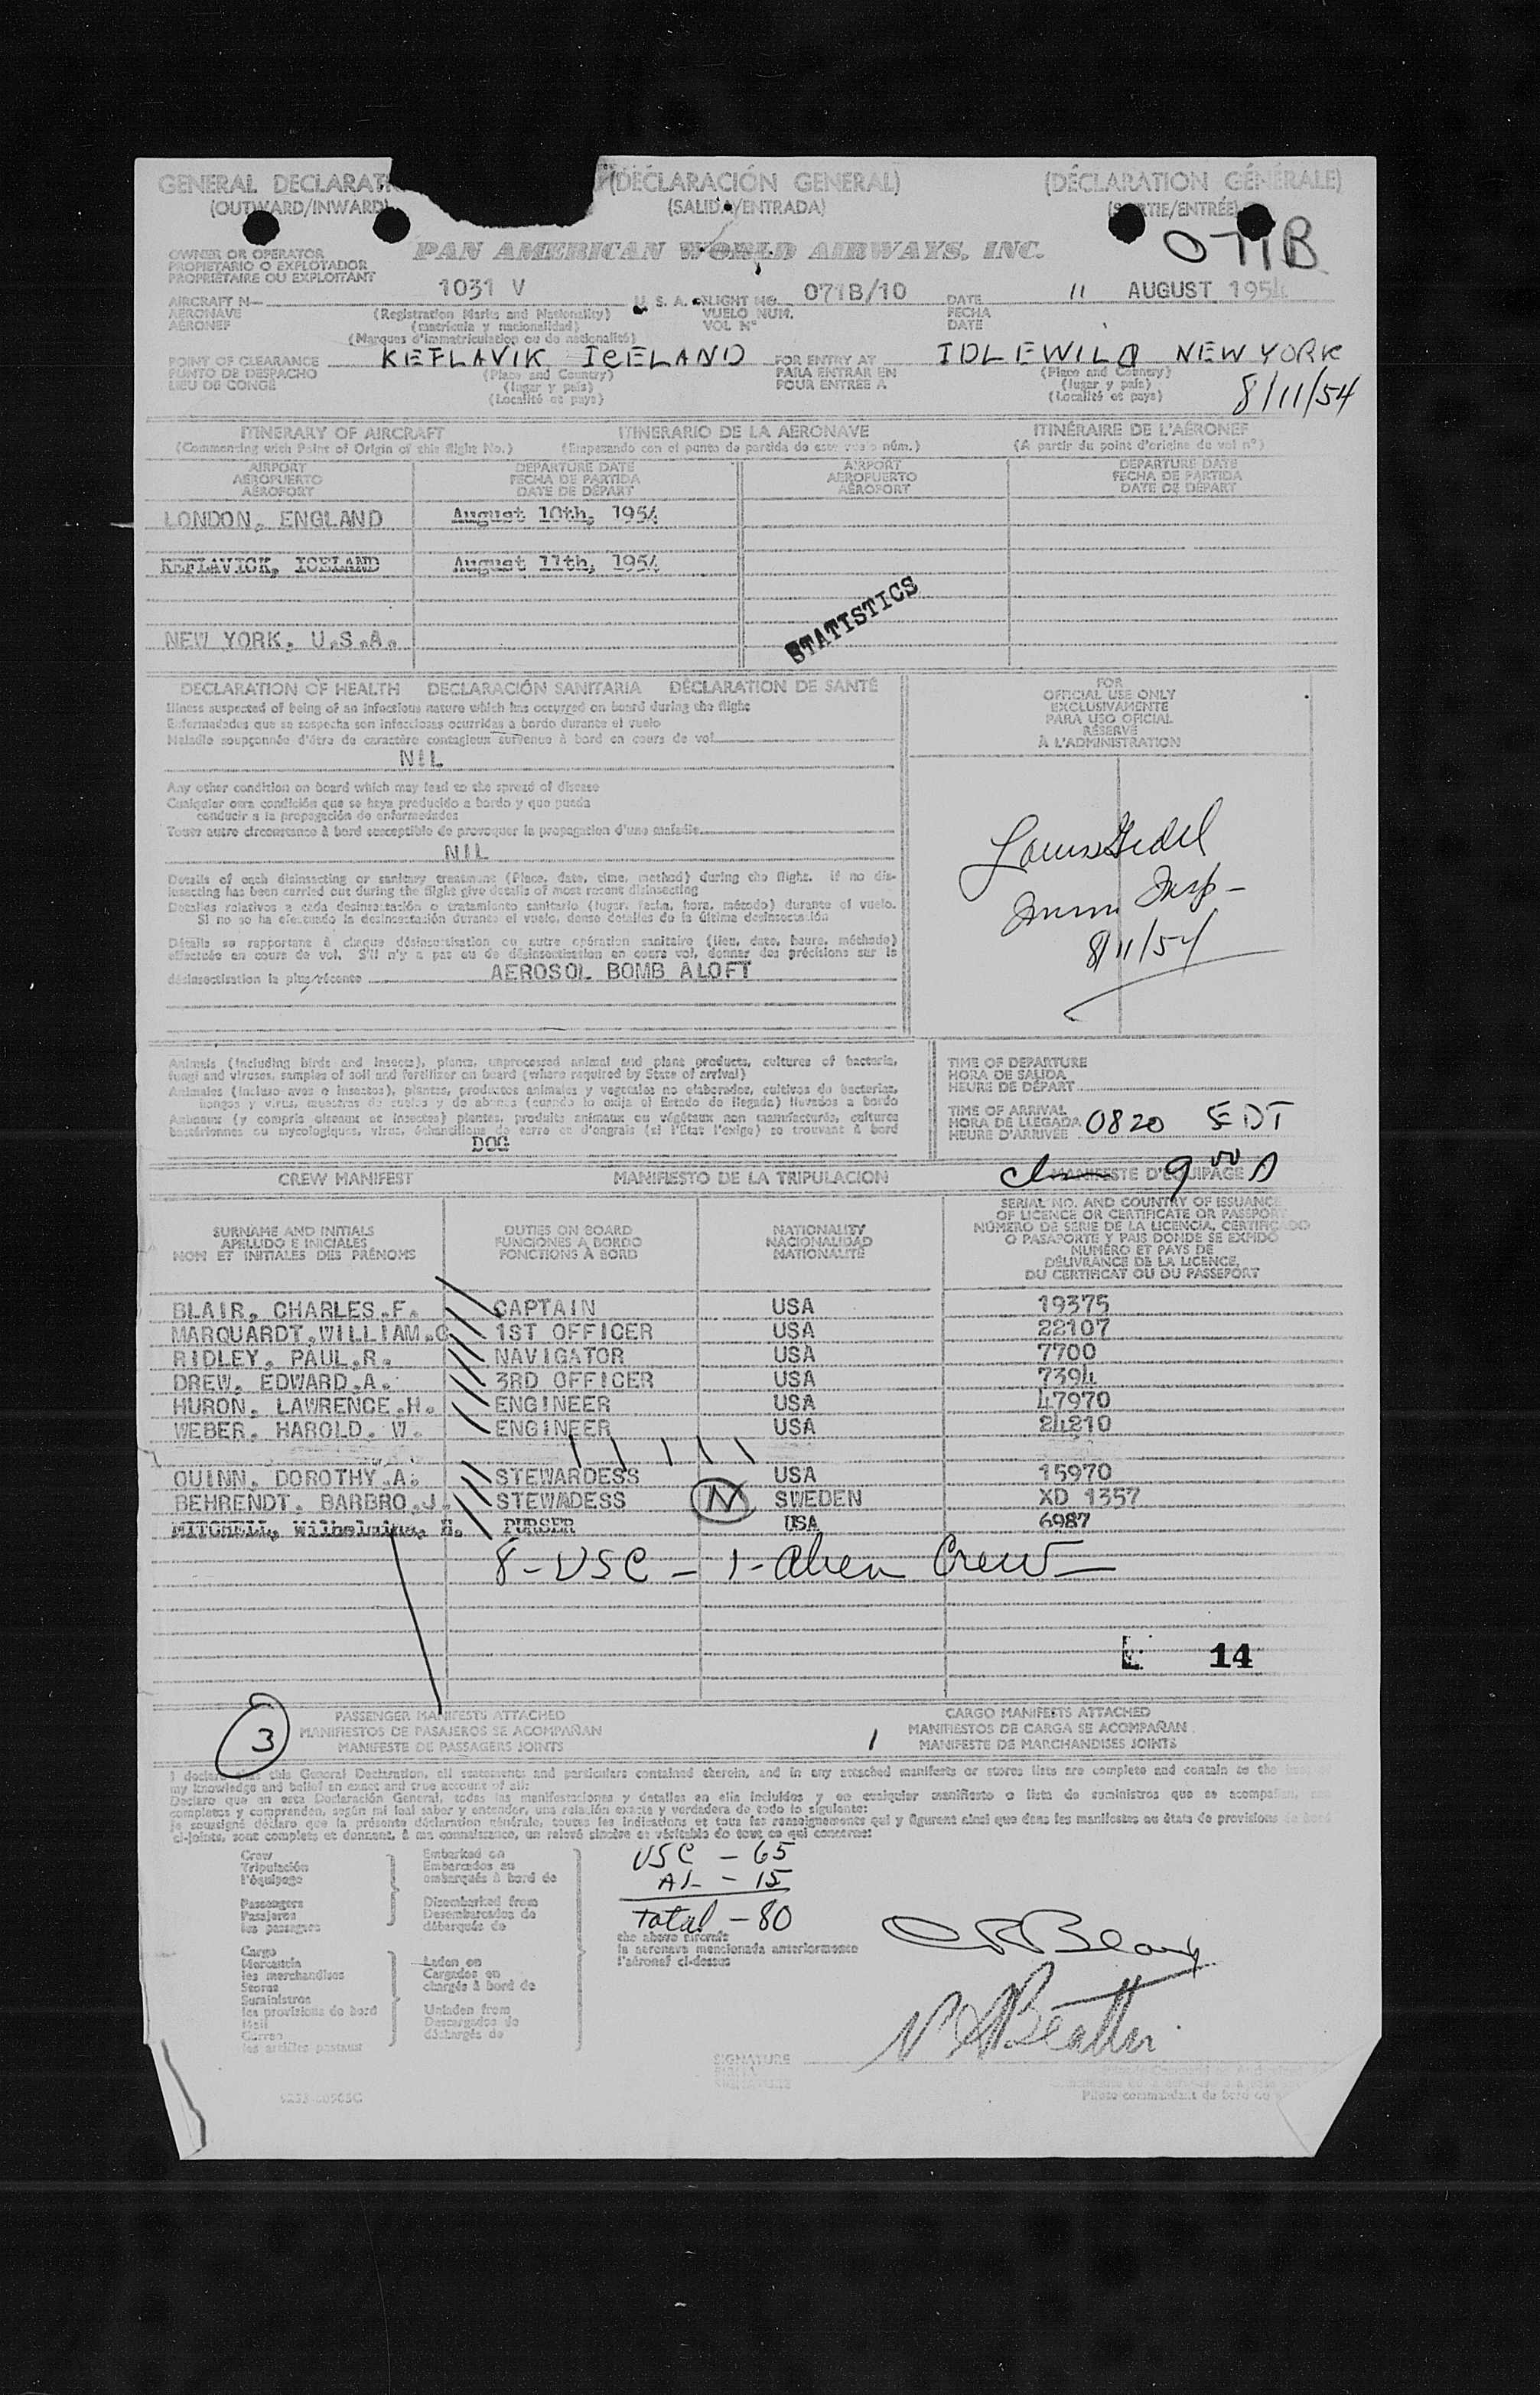 GENERAL DECLARAT (DECLARACIÓN GENERAL) (DÉCLARATION GÉNÉRALE)
(OUTWARD/INWARD) (SALIDA/ENTRADA) (SORTIE/ENTRÉE)
071B
OWNER OR OPERATOR
PROPIETARIO O EXPLOTADOR
PROPRIÉTAIRE OU EXPLOITANT
PAN AMERICAN WORLD AIRWAYS, INC.
AIRCRAFT N— 1031 V U. S. A. FLIGHT NO. 071B/10 DATE 11 AUGUST 1954
AERONAVE (Registration Marks and Nationality) VUELO NUM. FECHA
AÉRONEF (matrícula y nacionalidad) VOL Nº DATE
(Marques d'immatriculation ou de nationalité)
POINT OF CLEARANCE KEFLAVIK ICELAND FOR ENTRY AT IDLEWILD NEW YORK
PUNTO DE DESPACHO (Place and Country) PARA ENTRAR EN (Place and Country)
LIEU DE CONGÉ (lugar y país) POUR ENTRÉE A (lugar y país)
(Localité et pays) (Localité et pays)
8/11/54
ITINERARY OF AIRCRAFT ITINERARIO DE LA AERONAVE ITINÉRAIRE DE L'AÉRONEF
(Commencing with Point of Origin of this flight No.) (Empezando con el punto de partida de este vuelo núm.) (A partir du point d'origine du vol nº)
AIRPORT DEPARTURE DATE AIRPORT DEPARTURE DATE
AEROPUERTO FECHA DE PARTIDA AEROPUERTO FECHA DE PARTIDA
AÉROPORT DATE DE DÉPART AÉROPORT DATE DE DÉPART
LONDON, ENGLAND August 10th, 1954
KEFLAVICK, ICELAND August 11th, 1954
STATISTICS
NEW YORK, U.S.A.
DECLARATION OF HEALTH DECLARACIÓN SANITARIA DÉCLARATION DE SANTÉ
Illness suspected of being of an infectious nature which has occurred on board during the flight
Enfermedades que se sospecha son infecciosas ocurridas a bordo durante el vuelo
Maladie soupçonnée d'être de caractère contagieux survenue à bord en cours de vol
NIL
FOR
OFFICIAL USE ONLY
EXCLUSIVAMENTE
PARA USO OFICIAL
RÉSERVÉ
À L'ADMINISTRATION
Any other condition on board which may lead to the spread of disease
Cualquier otra condición que se haya producido a bordo y que pueda
conducir a la propagación de enfermedades
Toute autre circonstance à bord susceptible de provoquer la propagation d'une maladie
NIL
Details of each disinsecting or sanitary treatment (Place, date, time, method) during the flight. If no dis-
insecting has been carried out during the flight give details of most recent disinsecting
Detalles relativos a cada desinsectación o tratamiento sanitario (lugar, fecha, hora, método) durante el vuelo.
Si no se ha efectuado la desinsectación durante el vuelo, dense detalles de la última desinsectación
Détails se rapportant à chaque désinsectisation ou autre opération sanitaire (lieu, date, heure, méthode)
effectuée en cours de vol. S'il n'y a pas eu de désinsectisation en cours vol, donner des précisions sur la
désinsectisation la plus récente AEROSOL BOMB ALOFT
Insp-
8/11/54
Animals (including birds and insects), plants, unprocessed animal and plant products, cultures of bacteria,
fungi and viruses, samples of soil and fertilizer on board (where required by State of arrival)
Animales (incluso aves e insectos), plantas, productos animales y vegetales no elaborados, cultivos de bacterias,
hongos y virus, muestras de suelos y de abonos (cuando lo exija el Estado de llegada) llevados a bordo
Animaux (y compris oiseaux et insectes) plantes, produits animaux ou végétaux non manufacturés, cultures
bactériennes ou mycologiques, virus, échantillons de terre et d'engrais (si l'État l'exige) se trouvant à bord
DOG
TIME OF DEPARTURE
HORA DE SALIDA
HEURE DE DÉPART
TIME OF ARRIVAL
HORA DE LLEGADA 0820 EDT
HEURE D'ARRIVÉE
CREW MANIFEST MANIFIESTO DE LA TRIPULACION MANIFESTE D'ÉQUIPAGE
9 00 A
SURNAME AND INITIALS
APELLIDO E INICIALES
NOM ET INITIALES DES PRÉNOMS
DUTIES ON BOARD
FUNCIONES A BORDO
FONCTIONS À BORD
NATIONALITY
NACIONALIDAD
NATIONALITÉ
SERIAL NO. AND COUNTRY OF ISSUANCE
OF LICENCE OR CERTIFICATE OR PASSPORT
NÚMERO DE SERIE DE LA LICENCIA, CERTIFICADO
O PASAPORTE Y PAIS DONDE SE EXPIDO
NUMÉRO ET PAYS DE
DÉLIVRANCE DE LA LICENCE,
DU CERTIFICAT OU DU PASSEPORT
BLAIR, CHARLES.F. CAPTAIN USA 19375
MARQUARDT,WILLIAM.C 1ST OFFICER USA 22107
RIDLEY, PAUL.R. NAVIGATOR USA 7700
DREW, EDWARD.A. 3RD OFFICER USA 7394
HURON, LAWRENCE.H. ENGINEER USA 47970
WEBER, HAROLD. W. ENGINEER USA 24210
QUINN, DOROTHY.A. STEWARDESS USA 15970
BEHRENDT, BARBRO.J. STEWADESS N SWEDEN XD 1357
MITCHELL, Wilhelmina, H. PURSER USA 6987
8 - USC - 1 - Alien Crew
14
3
PASSENGER MANIFESTS ATTACHED
MANIFIESTOS DE PASAJEROS SE ACOMPAÑAN
MANIFESTE DE PASSAGERS JOINTS
1
CARGO MANIFESTS ATTACHED
MANIFIESTOS DE CARGA SE ACOMPAÑAN
MANIFESTE DE MARCHANDISES JOINTS
I declare that this General Declaration, all statements and particulars contained therein, and in any attached manifests or stores lists are complete and contain to the best of
my knowledge and belief an exact and true account of all:
Declaro que en esta Declaración General, todas las manifestaciones y detalles en ella incluidos y en cualquier manifiesto o lista de suministros que se acompañan, son
completos y comprenden, según mi leal saber y entender, una relación exacta y verdadera de todo lo siguiente:
Je soussigné déclare que la présente déclaration générale, toutes les indications et tous les renseignements qui y figurent ainsi que dans les manifestes ou états de provisions de bord
ci-joints, sont complets et donnent, à ma connaissance, un relevé sincère et véritable de tout ce qui concerne:
Crew
Tripulación
l'équipage
Passengers
Pasajeros
les passagers
Cargo
Mercancía
les marchandises
Stores
Suministros
les provisions de bord
Mail
Correo
les articles postaux
Embarked on
Embarcados en
embarqués à bord de
Disembarked from
Desembarcados de
débarqués de
Laden on
Cargados en
chargés à bord de
Unladen from
Descargados de
déchargés de
USC - 65
AL - 15
Total - 80
the above aircraft
la aeronave mencionada anteriormente
l'aéronef ci-dessus
SIGNATURE
FIRMA
SIGNATURE
Pilote commandant de bord ou